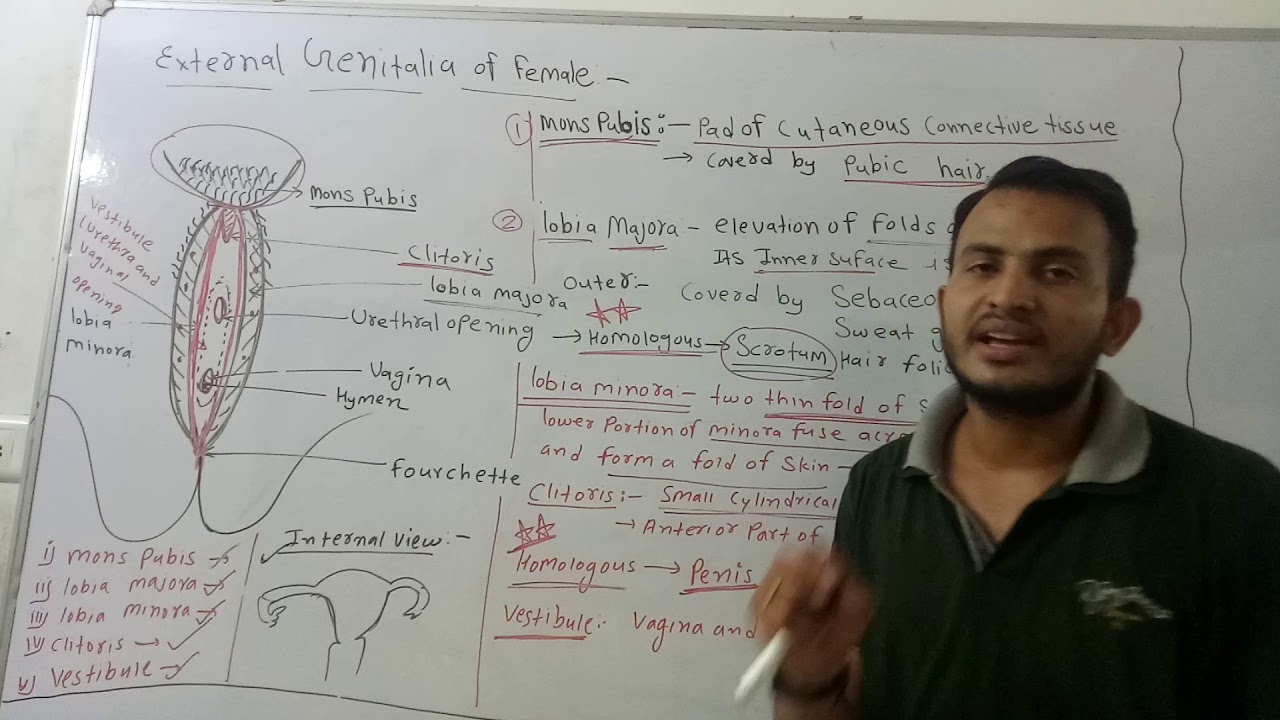 External Genitalia of Female:-
Mons Pubis
Clitoris
lobia majora
Urethral opening
Vagina
Hymen
fourchette
Vestibule
(Urethra and
vaginal
opening
lobia
minora
i) mons Pubis
ii) lobia majora
iii) lobia minora
iv) Clitoris →
v) Vestibule
Internal View:-
① Mons Pubis:- Pad of Cutaneous Connective tissue
→ Coverd by Pubic hair
② lobia Majora - elevation of Folds
Its Inner suface is
Outer:- Coverd by
Sweat
→ Homologous → Scrotum Hair
lobia minora:- two thin fold of
lower Portion of minora fuse
and form a fold of Skin -
Clitoris:- Small Cylindrical
→ Anterior Part of
Homologous → Penis
Vestibule:- Vagina and